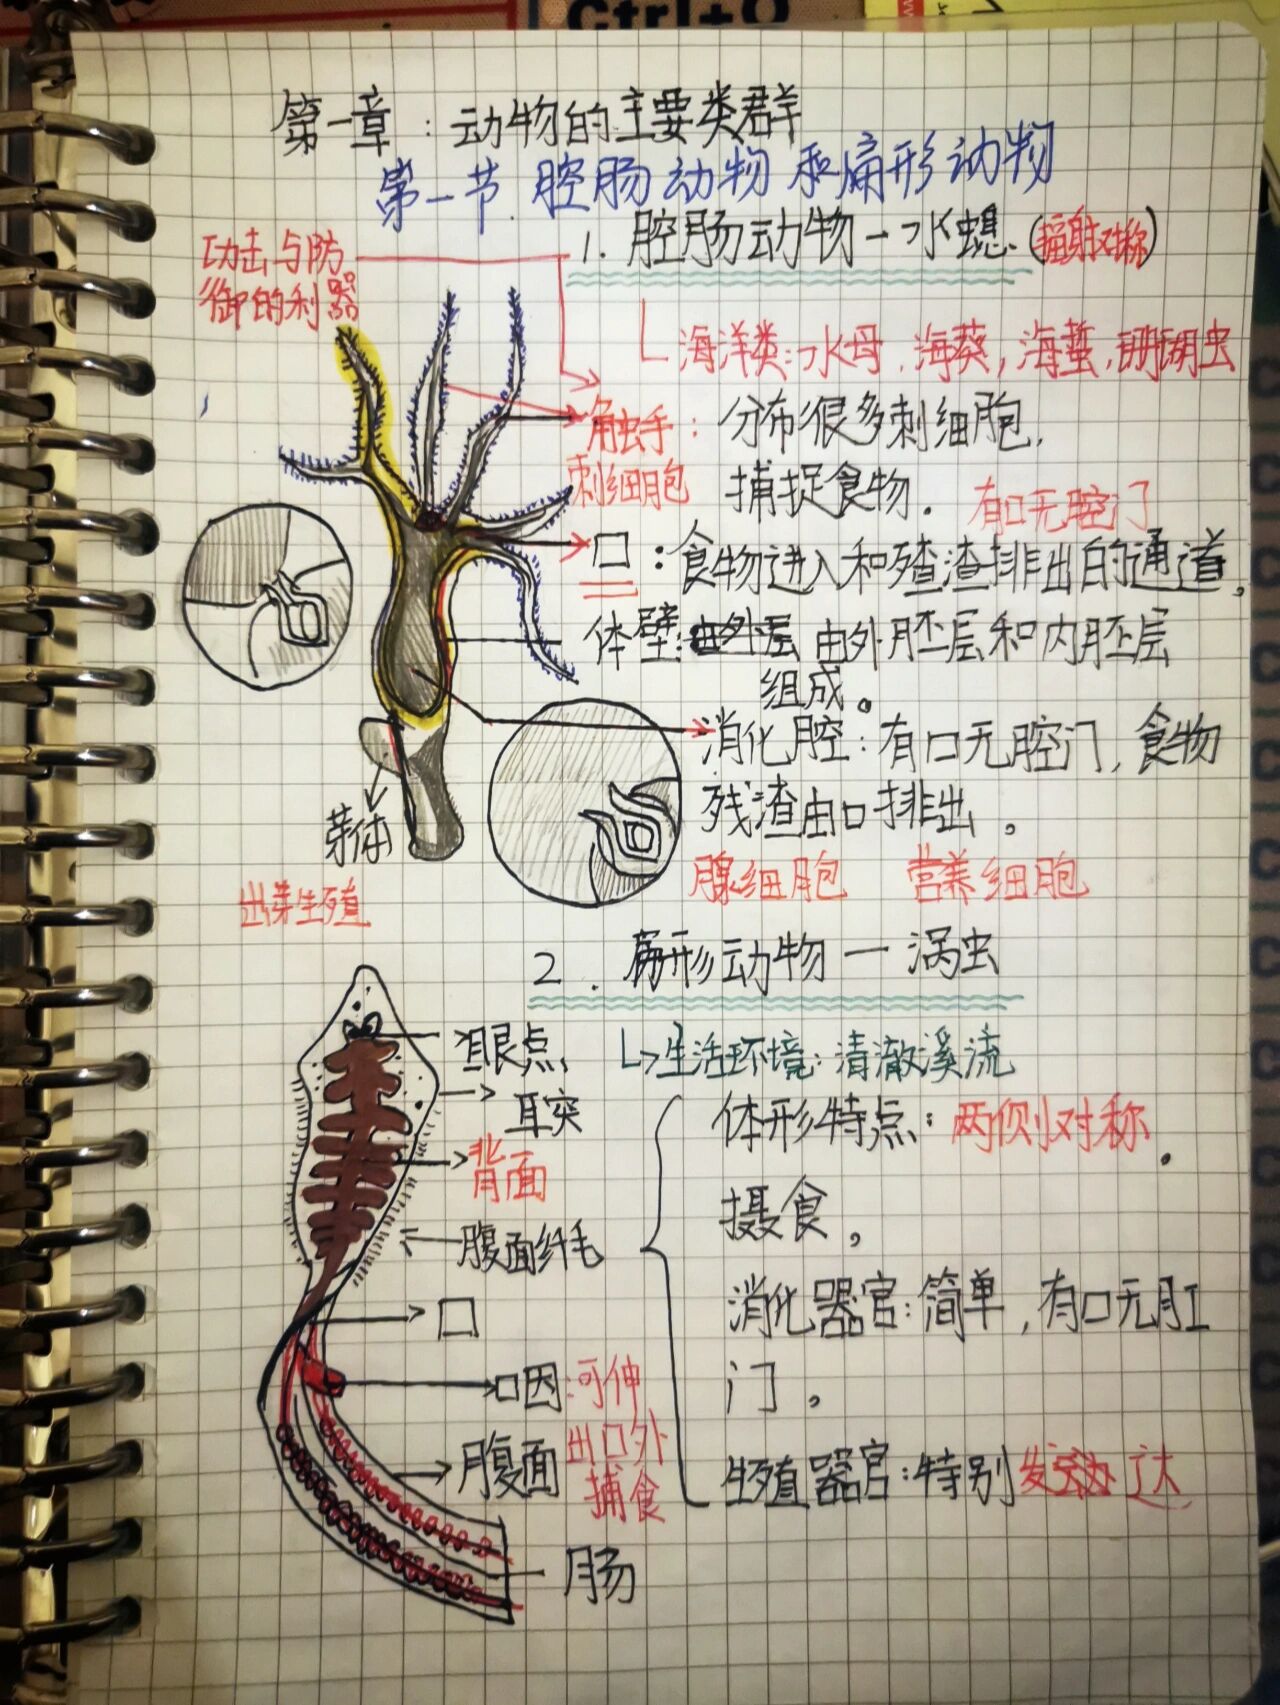 Ctrl+Q
第一章：动物的主要类群
第一节.腔肠动物和扁形动物
1.腔肠动物－水螅.(辐射对称)
功击与防
御的利器
海洋类:水母,海葵,海蜇,珊瑚虫
触手：分布很多刺细胞.
刺细胞
捕捉食物.
有口无腔门
口：食物进入和残渣排出的通道.
体壁:由外层 由外胚层和内胚层
组成。
消化腔：有口无腔门,食物
残渣由口排出。
芽体
腺细胞 营养细胞
出芽生殖
2.扁形动物－涡虫
眼点
生活环境:清澈溪流
耳突
体形特点:两侧对称.
背面
摄食。
腹面纤毛
消化器官:简单,有口无肛
口
门。
口因 可伸
出口外
捕食
腹面
生殖器官:特别发达
肠